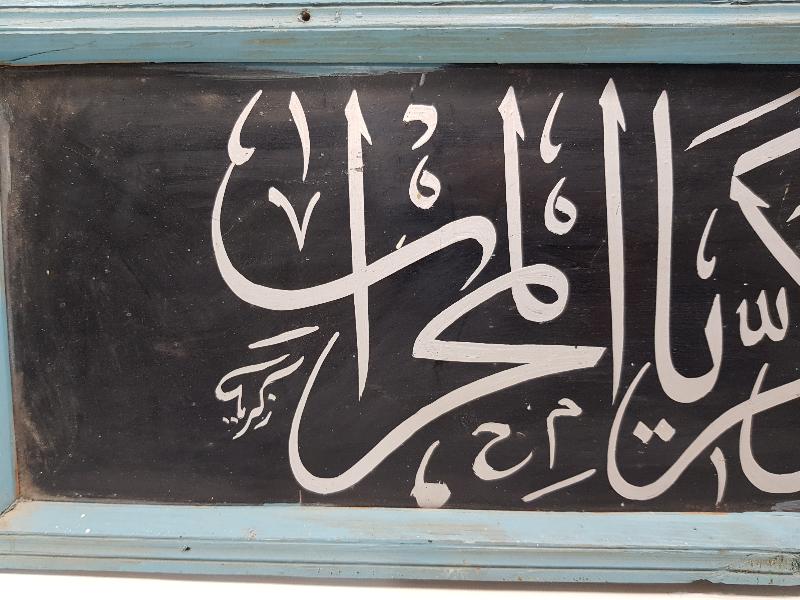 زكريا المحراب
زكريا